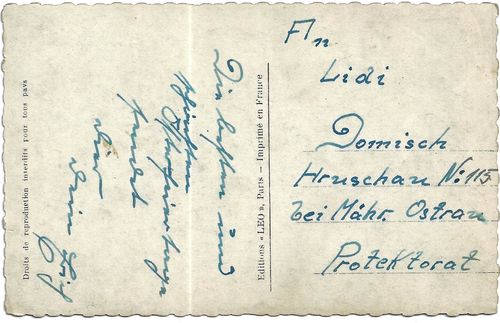 Droits de reproduction interdits pour tous pays
Die besten und
schönsten
sendet
dir
dein
Editions « LEO », Paris — Imprimé en France
An
Lidi
Domisch
Hruschau No: 115
bei Mähr. Ostrau
Protektorat